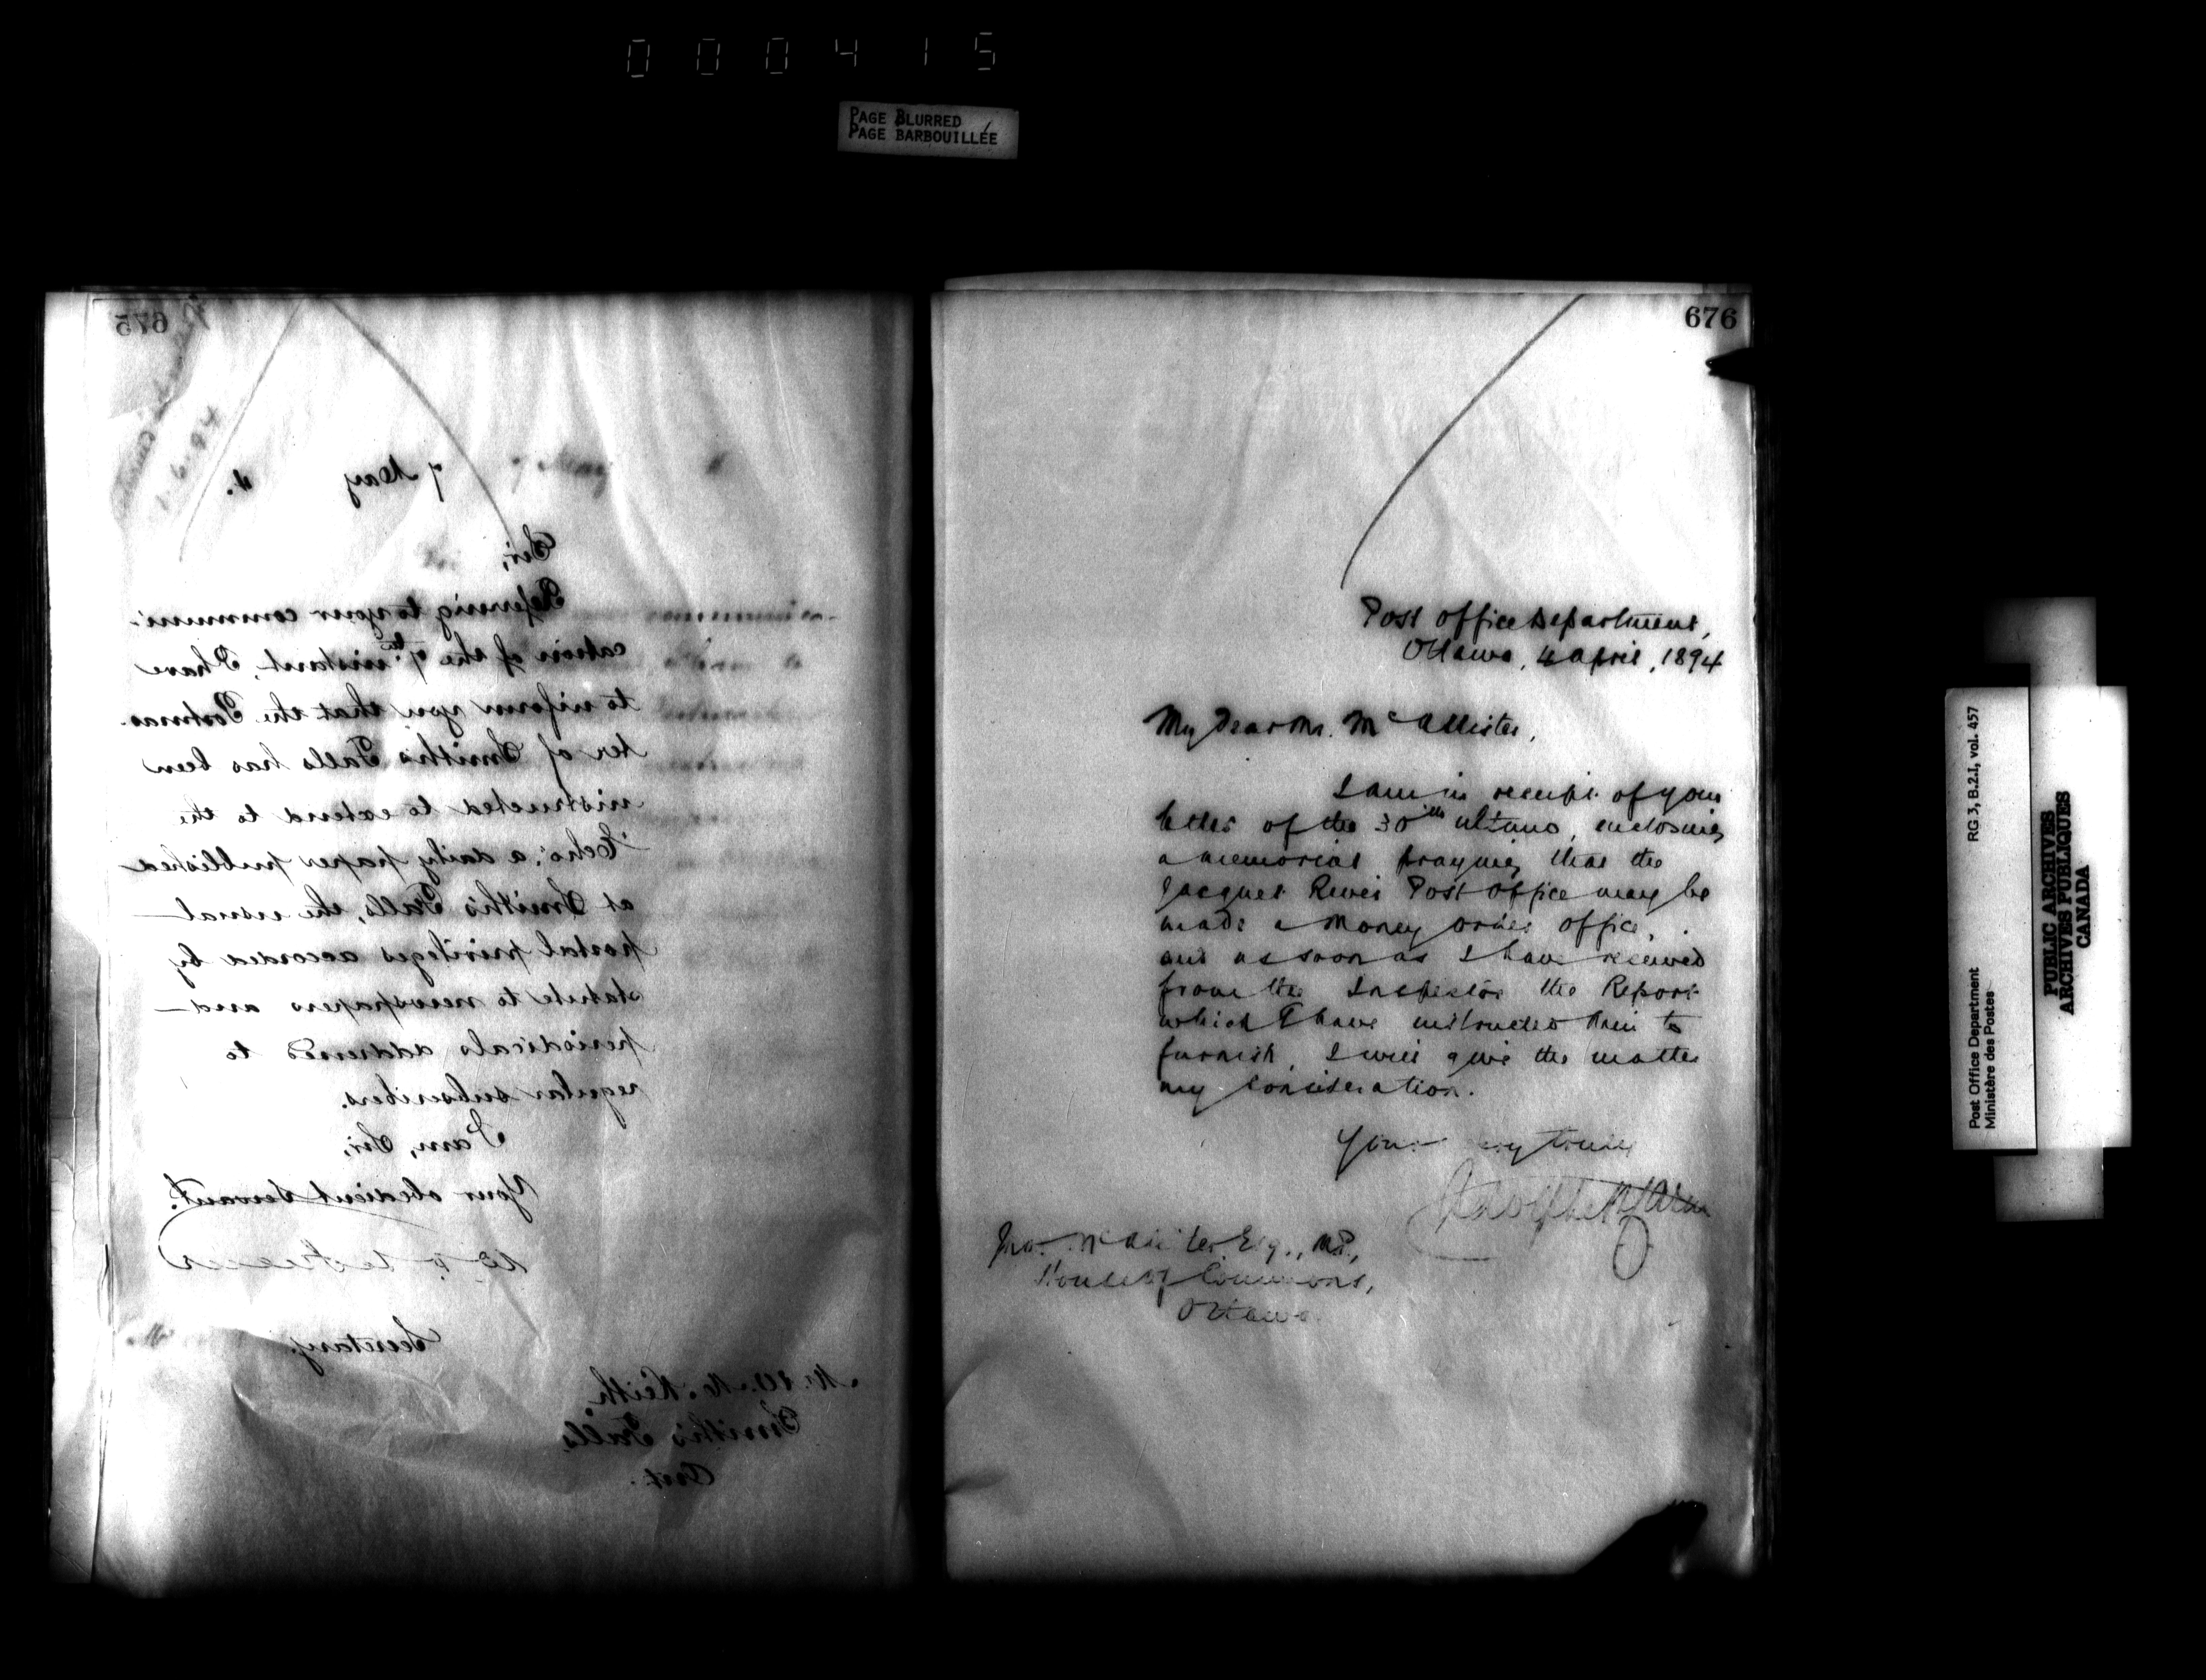 000415
PAGE BLURRED
PAGE BARBOUILLÉE
675
1.6.94
7 May 4.
Sir,
Referring to your communi-
cation of the 7th instant, I have
to inform you that the Postmas-
ter of Smith's Falls has been
instructed to extend to the
"Echo", a daily paper published
at Smith's Falls, the usual
postal privileges accorded by
statute to newspapers and
periodicals addressed to
regular subscribers.
I am, Sir,
Your obedient Servant.
Secretary.
Keith,
Smith's Falls,
Ont.
676
Post Office Department,
Ottawa, 4 April, 1894
My Dear Mr. McAllister,
I am in receipt of your
letter of the 30th ultimo, enclosing
a memorial praying that the
Jacquet River Post Office may be
made a Money Order Office,
and as soon as I have received
from the Inspector the Report
which I have instructed him to
furnish, I will give the matter
my consideration.
Yours very truly
Jno. McAllister Esq., M.P.,
House of Commons,
Ottawa
Post Office Department
Ministère des Postes
RG 3, B.2.I, vol. 457
PUBLIC ARCHIVES
ARCHIVES PUBLIQUES
CANADA